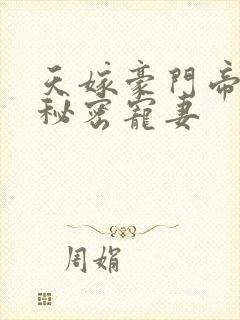 天嫁豪門帝
秘密寵妻
周娟